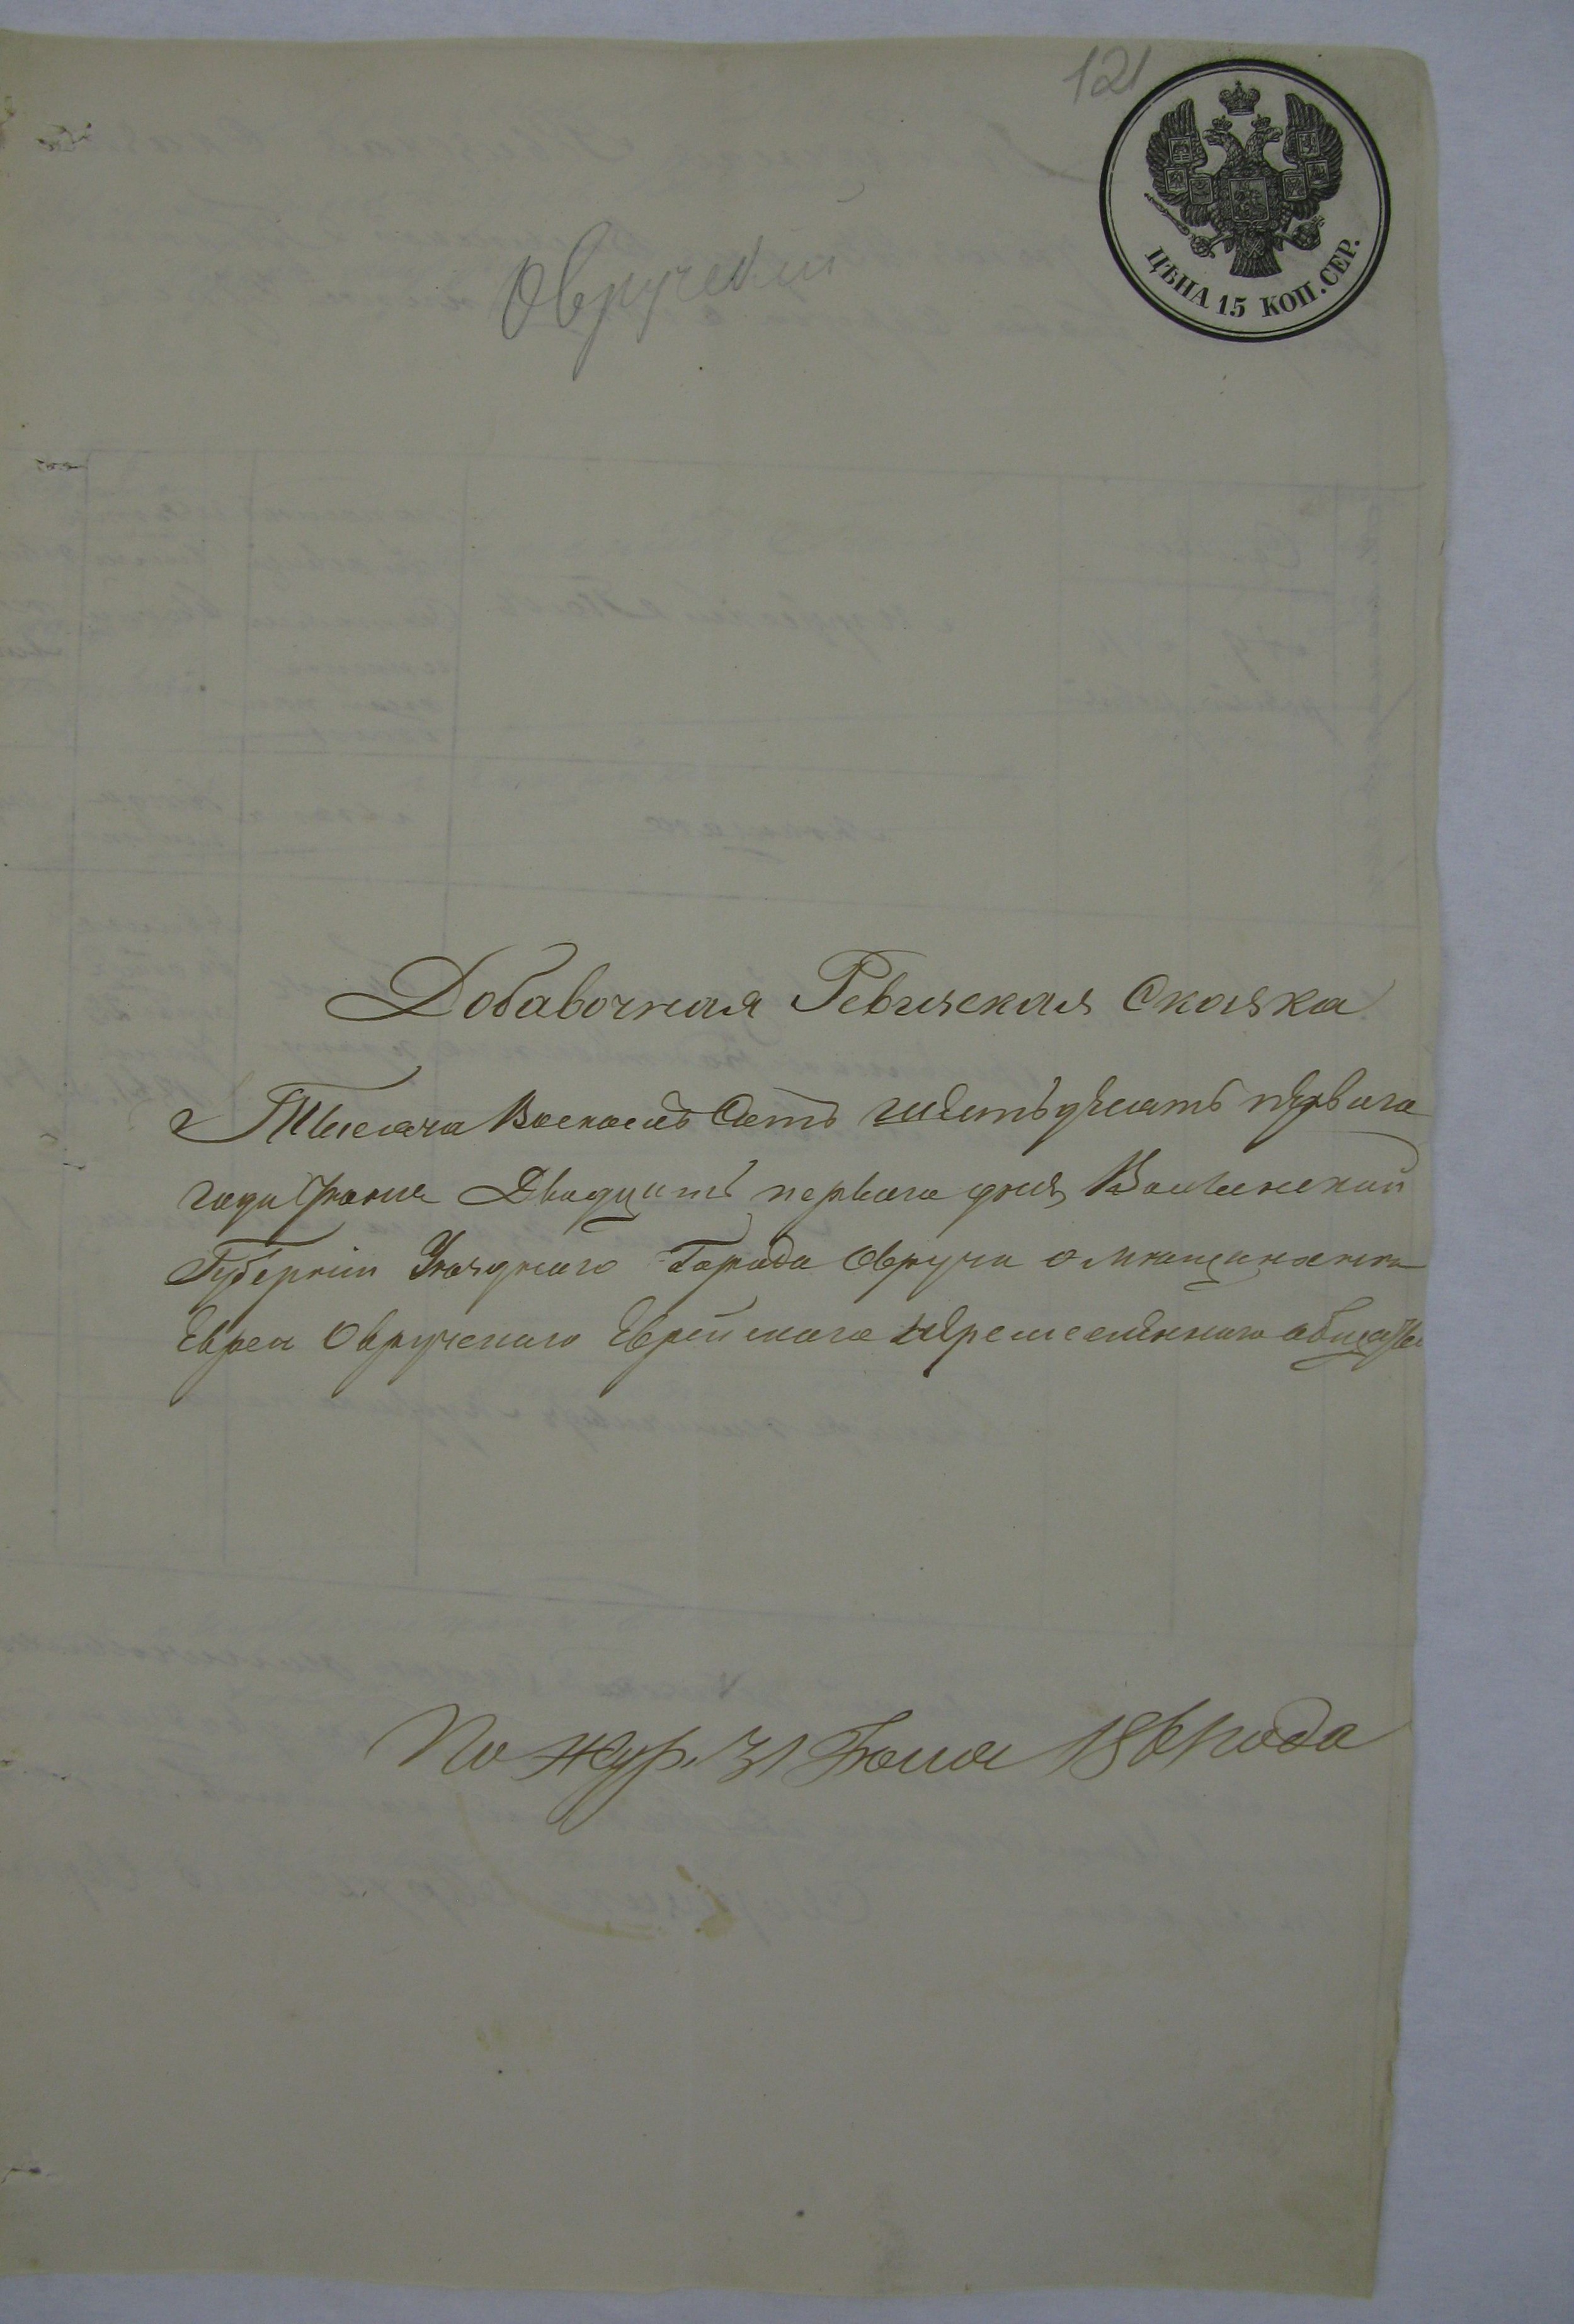 121
ЦѢНА 15 КОП. СЕР.
Овручский
Добавочная Ревизская Сказка
Тысяча Восемсотъ шестьдесятъ перваго
года Іюня Двадцать перваго дня Волынской
Губерніи Уѣзднаго Города Овруча о мѣщанахъ
Евреи Овручскаго Еврейскаго общества
По жур. 31 186 года